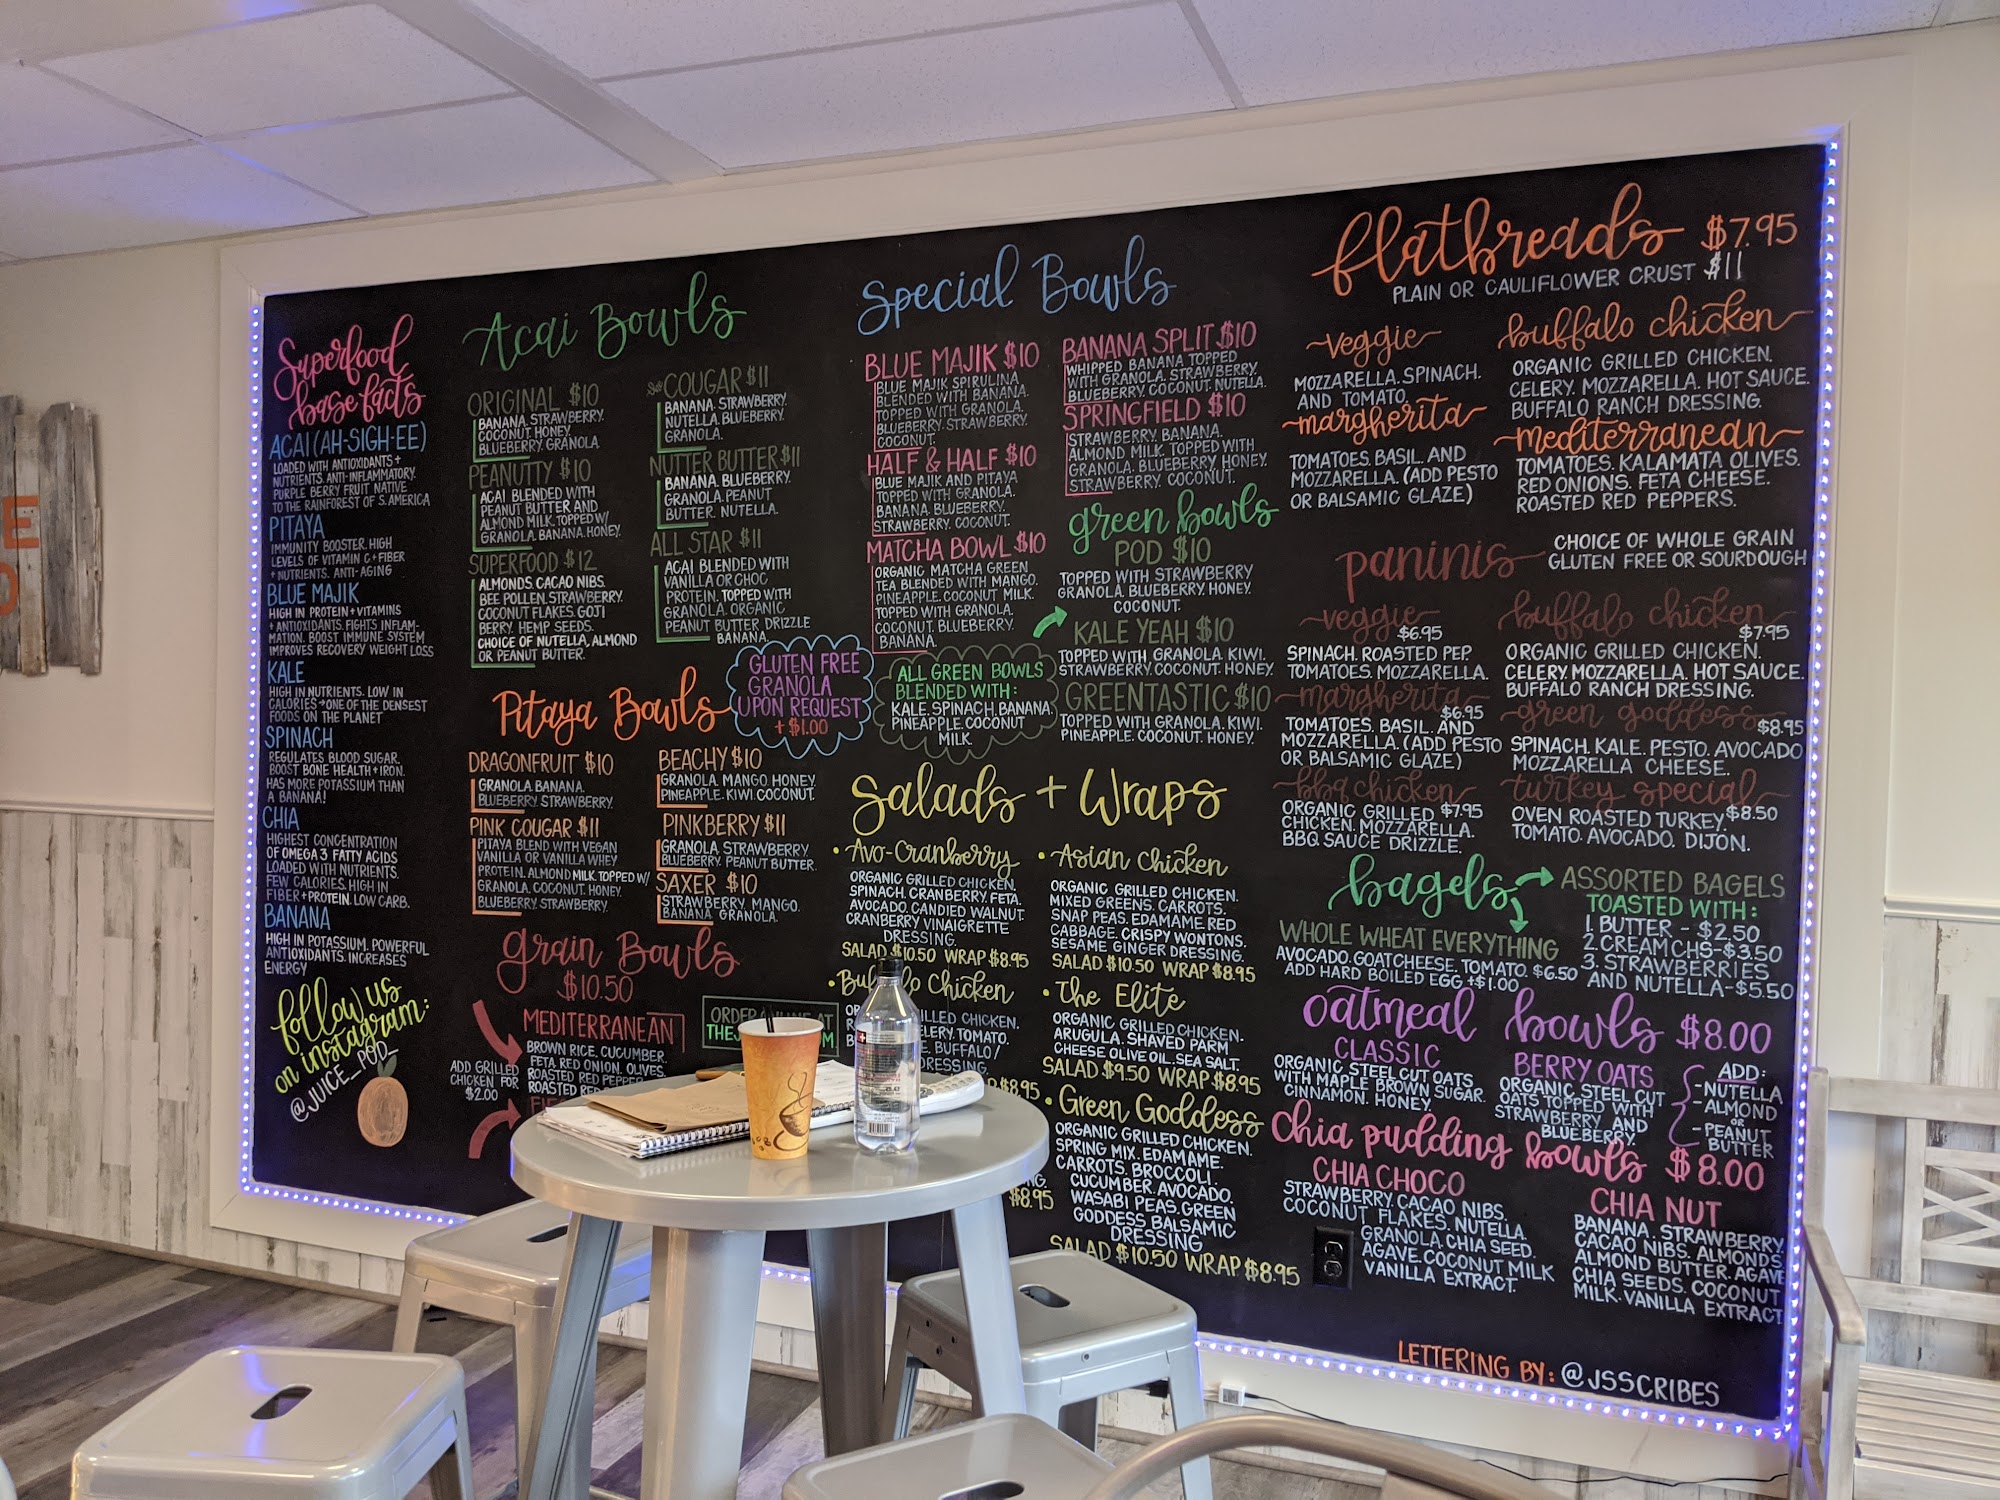 Superfood
base facts
ACAI (AH-SIGH-EE)
LOADED WITH ANTIOXIDANTS +
NUTRIENTS. ANTI-INFLAMMATORY.
PURPLE BERRY FRUIT NATIVE
TO THE RAINFOREST OF S.AMERICA
PITAYA
IMMUNITY BOOSTER. HIGH
LEVELS OF VITAMIN C + FIBER
+ NUTRIENTS. ANTI-AGING
BLUE MAJIK
HIGH IN PROTEIN + VITAMINS
+ ANTIOXIDANTS. FIGHTS INFLAM-
MATION. BOOST IMMUNE SYSTEM
IMPROVES RECOVERY WEIGHT LOSS
KALE
HIGH IN NUTRIENTS. LOW IN
CALORIES → ONE OF THE DENSEST
FOODS ON THE PLANET
SPINACH
REGULATES BLOOD SUGAR.
BOOST BONE HEALTH + IRON.
HAS MORE POTASSIUM THAN
A BANANA!
CHIA
HIGHEST CONCENTRATION
OF OMEGA 3 FATTY ACIDS
LOADED WITH NUTRIENTS.
FEW CALORIES. HIGH IN
FIBER + PROTEIN. LOW CARB.
BANANA
HIGH IN POTASSIUM. POWERFUL
ANTIOXIDANTS. INCREASES
ENERGY
follow us
on instagram:
@JUICE_POD_
Acai Bowls
ORIGINAL $10
BANANA. STRAWBERRY.
COCONUT. HONEY.
BLUEBERRY. GRANOLA.
PEANUTTY $10
ACAI BLENDED WITH
PEANUT BUTTER AND
ALMOND MILK. TOPPED W/
GRANOLA. BANANA. HONEY.
SUPERFOOD $12
ALMONDS. CACAO NIBS.
BEE POLLEN. STRAWBERRY.
COCONUT FLAKES. GOJI
BERRY. HEMP SEEDS.
CHOICE OF NUTELLA, ALMOND
OR PEANUT BUTTER.
COUGAR $11
BANANA. STRAWBERRY.
NUTELLA. BLUEBERRY.
GRANOLA.
NUTTER BUTTER $11
BANANA. BLUEBERRY.
GRANOLA. PEANUT
BUTTER. NUTELLA.
ALL STAR $11
ACAI BLENDED WITH
VANILLA OR CHOC
PROTEIN. TOPPED WITH
GRANOLA. ORGANIC
PEANUT BUTTER DRIZZLE
BANANA.
GLUTEN FREE
GRANOLA
UPON REQUEST
+ $1.00
Pitaya Bowls
DRAGONFRUIT $10
GRANOLA. BANANA.
BLUEBERRY. STRAWBERRY.
PINK COUGAR $11
PITAYA BLEND WITH VEGAN
VANILLA OR VANILLA WHEY
PROTEIN. ALMOND MILK. TOPPED W/
GRANOLA. COCONUT. HONEY.
BLUEBERRY. STRAWBERRY.
BEACHY $10
GRANOLA. MANGO. HONEY.
PINEAPPLE. KIWI. COCONUT.
PINKBERRY $11
GRANOLA. STRAWBERRY.
BLUEBERRY. PEANUT BUTTER.
SAXER $10
STRAWBERRY. MANGO.
BANANA. GRANOLA.
Grain Bowls
$10.50
MEDITERRANEAN
BROWN RICE. CUCUMBER.
FETA. RED ONION. OLIVES.
ROASTED RED PEPPER
ROASTED RED
ADD GRILLED
CHICKEN FOR
$2.00
ORDER ONLINE AT
Special Bowls
BLUE MAJIK $10
BLUE MAJIK SPIRULINA
BLENDED WITH BANANA.
TOPPED WITH GRANOLA.
BLUEBERRY. STRAWBERRY.
COCONUT.
HALF & HALF $10
BLUE MAJIK AND PITAYA
TOPPED WITH GRANOLA.
BANANA. BLUEBERRY.
STRAWBERRY. COCONUT.
MATCHA BOWL $10
ORGANIC MATCHA GREEN
TEA BLENDED WITH MANGO.
PINEAPPLE. COCONUT MILK.
TOPPED WITH GRANOLA.
COCONUT. BLUEBERRY.
BANANA.
BANANA SPLIT $10
WHIPPED BANANA TOPPED
WITH GRANOLA. STRAWBERRY.
BLUEBERRY. COCONUT. NUTELLA.
SPRINGFIELD $10
STRAWBERRY. BANANA.
ALMOND MILK. TOPPED WITH
GRANOLA. BLUEBERRY. HONEY.
STRAWBERRY. COCONUT.
green bowls
POD $10
TOPPED WITH STRAWBERRY
GRANOLA. BLUEBERRY. HONEY.
COCONUT.
KALE YEAH $10
TOPPED WITH GRANOLA. KIWI.
STRAWBERRY. COCONUT. HONEY.
GREENTASTIC $10
TOPPED WITH GRANOLA. KIWI.
PINEAPPLE. COCONUT. HONEY.
ALL GREEN BOWLS
BLENDED WITH:
KALE. SPINACH. BANANA.
PINEAPPLE. COCONUT
MILK.
Salads + Wraps
• Avo-Cranberry
ORGANIC GRILLED CHICKEN.
SPINACH. CRANBERRY. FETA.
AVOCADO. CANDIED WALNUT.
CRANBERRY VINAIGRETTE
DRESSING.
SALAD $10.50 WRAP $8.95
• Buffalo Chicken
GRILLED CHICKEN.
CELERY. TOMATO.
BUFFALO/
DRESSING.
$8.95
$8.95
• Asian Chicken
ORGANIC GRILLED CHICKEN.
MIXED GREENS. CARROTS.
SNAP PEAS. EDAMAME. RED
CABBAGE. CRISPY WONTONS.
SESAME GINGER DRESSING.
SALAD $10.50 WRAP $8.95
• The Elite
ORGANIC GRILLED CHICKEN.
ARUGULA. SHAVED PARM
CHEESE. OLIVE OIL. SEA SALT.
SALAD $9.50 WRAP $8.95
• Green Goddess
ORGANIC GRILLED CHICKEN.
SPRING MIX. EDAMAME.
CARROTS. BROCCOLI.
CUCUMBER. AVOCADO.
WASABI PEAS. GREEN
GODDESS BALSAMIC
DRESSING
SALAD $10.50 WRAP $8.95
flatbreads $7.95
PLAIN OR CAULIFLOWER CRUST $11
veggie
MOZZARELLA. SPINACH.
AND TOMATO.
margherita
TOMATOES. BASIL. AND
MOZZARELLA. (ADD PESTO
OR BALSAMIC GLAZE)
buffalo chicken
ORGANIC GRILLED CHICKEN.
CELERY. MOZZARELLA. HOT SAUCE.
BUFFALO RANCH DRESSING.
mediterranean
TOMATOES. KALAMATA OLIVES.
RED ONIONS. FETA CHEESE.
ROASTED RED PEPPERS.
paninis
CHOICE OF WHOLE GRAIN
GLUTEN FREE OR SOURDOUGH
veggie
$6.95
SPINACH. ROASTED PEP.
TOMATOES. MOZZARELLA.
margherita
$6.95
TOMATOES. BASIL. AND
MOZZARELLA. (ADD PESTO
OR BALSAMIC GLAZE)
bbq chicken
ORGANIC GRILLED $7.95
CHICKEN. MOZZARELLA.
BBQ SAUCE DRIZZLE.
buffalo chicken
$7.95
ORGANIC GRILLED CHICKEN.
CELERY. MOZZARELLA. HOT SAUCE.
BUFFALO RANCH DRESSING.
green goddess
$8.95
SPINACH. KALE. PESTO. AVOCADO
MOZZARELLA CHEESE.
turkey special
OVEN ROASTED TURKEY. $8.50
TOMATO. AVOCADO. DIJON.
bagels
WHOLE WHEAT EVERYTHING
AVOCADO. GOAT CHEESE. TOMATO. $6.50
ADD HARD BOILED EGG +$1.00
ASSORTED BAGELS
TOASTED WITH:
1. BUTTER - $2.50
2. CREAM CHS-$3.50
3. STRAWBERRIES
AND NUTELLA-$5.50
oatmeal bowls $8.00
CLASSIC
ORGANIC STEEL CUT OATS
WITH MAPLE BROWN SUGAR.
CINNAMON. HONEY.
BERRY OATS
ORGANIC STEEL CUT
OATS TOPPED WITH
STRAWBERRY AND
BLUEBERRY.
ADD:
-NUTELLA
-ALMOND
OR
-PEANUT
BUTTER
Chia pudding bowls $8.00
CHIA CHOCO
STRAWBERRY. CACAO NIBS.
COCONUT FLAKES. NUTELLA.
GRANOLA. CHIA SEED.
AGAVE. COCONUT MILK
VANILLA EXTRACT.
CHIA NUT
BANANA. STRAWBERRY.
CACAO NIBS. ALMONDS.
ALMOND BUTTER. AGAVE
CHIA SEEDS. COCONUT
MILK. VANILLA EXTRACT
LETTERING BY: @JSSCRIBES